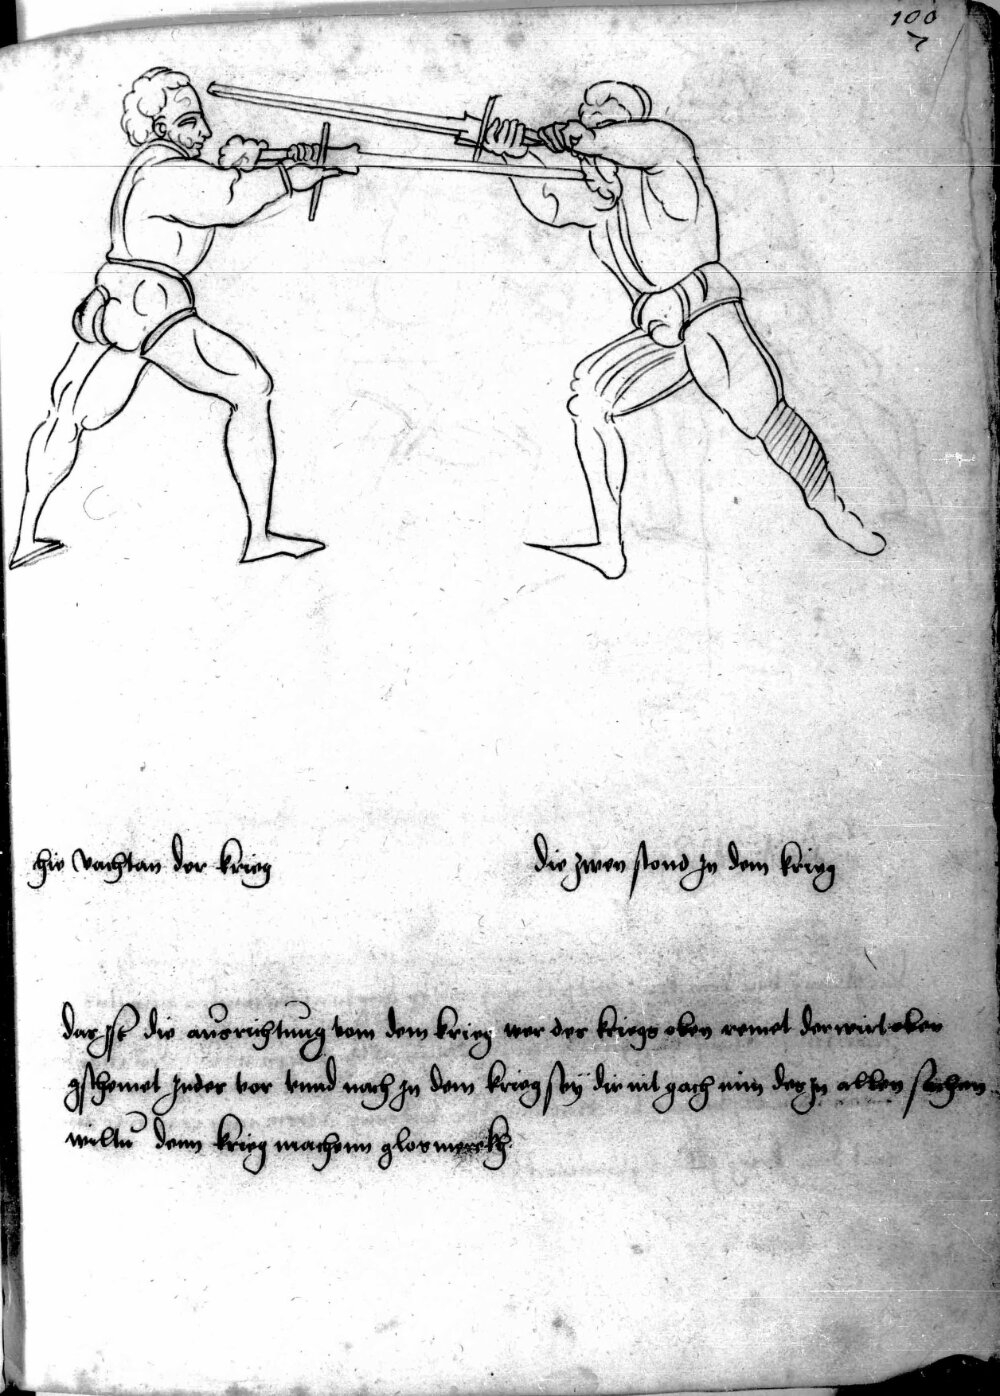 100
7
hie vachtan der krieg
die zwen stond In dem krieg
das Ist die ausrichtung vom dem krieg wer des kriegs oben remet der wirt oben
gschemet Indes vor vnnd nach In dem krieg sey dir nit gach nim des In allen sachen
wiltu denn krieg machenn glos merckh